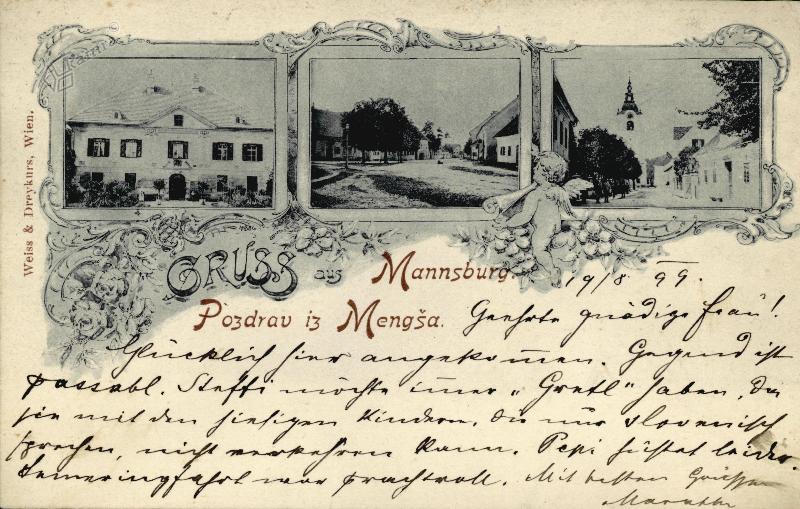 Weiss & Dreykurs, Wien.
Gruss aus Mannsburg.
Pozdrav iz Mengša.
19/8 99.
Geehrte gnädige Frau!
Glücklich hier angekommen. Gegend ist
passabl. Steffi möchte immer „Gretl" haben, da
sie mit den hiesigen Kindern, die nur slovenisch
sprechen, nicht verkehren kann. Pepi hustet leider.
Semeringfahrt war prachtvoll. Mit besten Grüssen